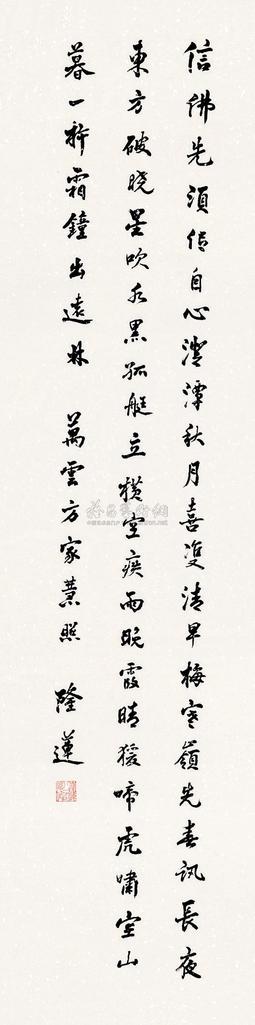 信佛先須信自心澄潭秋月喜雙清早梅寒嶺先春訊長夜
東方破曉星吹衣黑孤艇立橫空疾雨晚霞晴猨啼虎嘯空山
暮一杵霜鐘出遠林 萬雲方家慧照
隆蓮